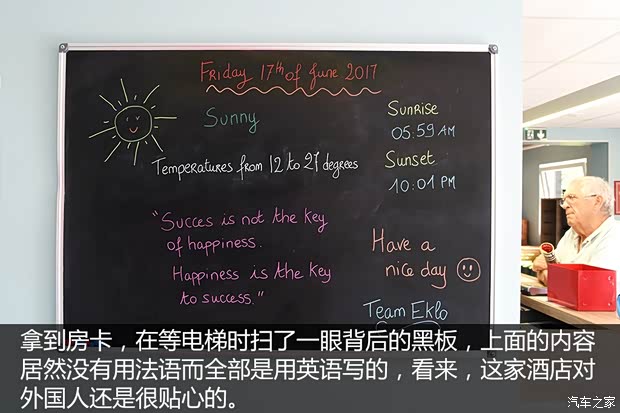 Friday 17th of June 2017
Sunny
Sunrise
05:59 AM
Sunset
10:01 PM
Temperatures from 12 to 27 degrees
"Succes is not the key
of happiness.
Happiness is the key
to success."
Have a
nice day
Team Eklo
拿到房卡，在等电梯时扫了一眼背后的黑板，上面的内容
居然没有用法语而全部是用英语写的，看来，这家酒店对
外国人还是很贴心的。
汽车之家